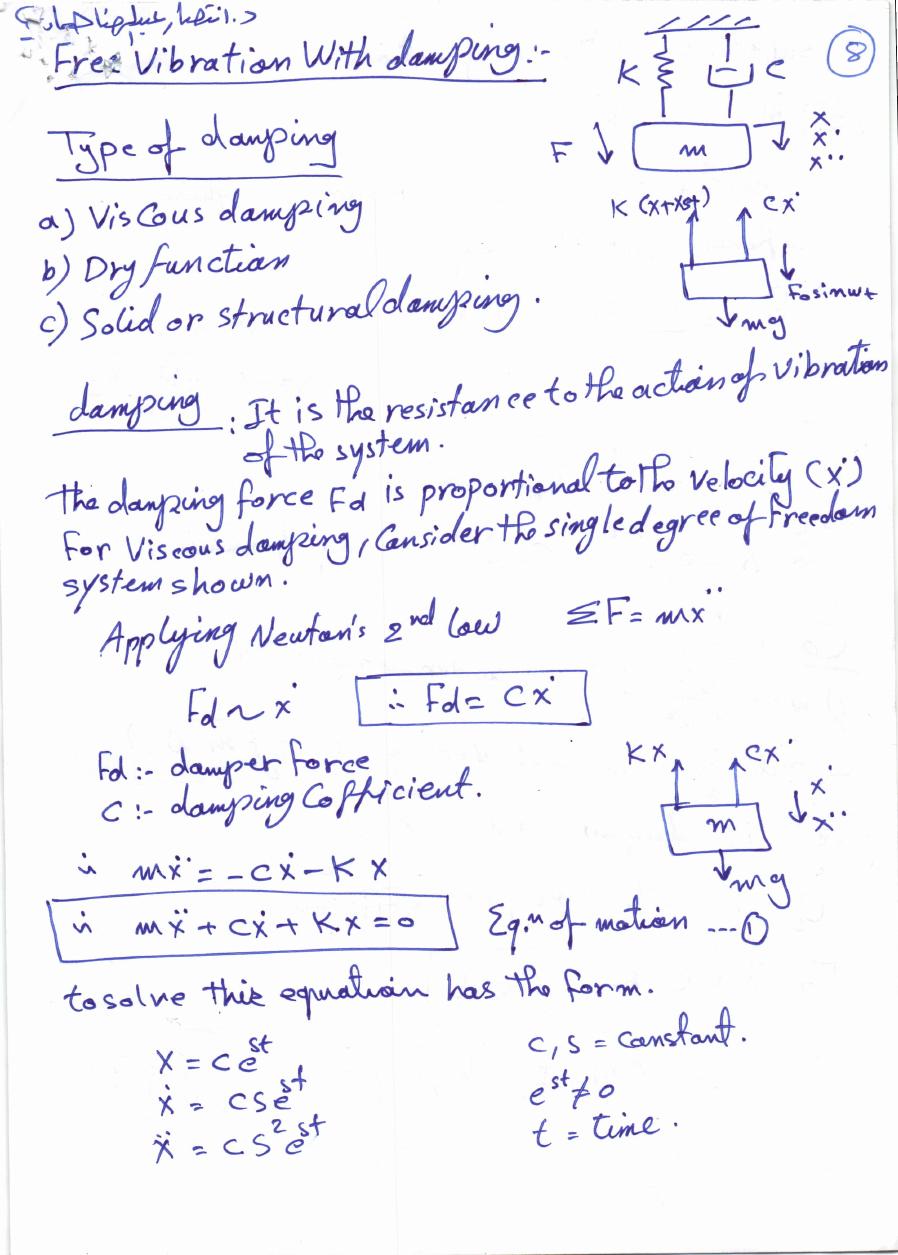 Free Vibration With damping:-
8
K
C
F
m
x
ẋ
ẍ
Type of damping
K (x+xst)
cẋ
a) Viscous damping
b) Dry function
Fosinwt
mg
c) Solid or structural damping.
damping : It is the resistance to the action of vibration
of the system.
the damping force Fd is proportional to the velocity (ẋ)
For Viscous damping, Consider the single degree of freedom
system shown.
Applying Newton's 2nd low ΣF = mẍ
Fd ~ ẋ ∴ Fd = Cẋ
Fd :- damper force
C :- damping Cofficient.
Kx
cẋ
m
ẋ
ẍ
mg
∴ mẍ = -cẋ - K x
∴ mẍ + cẋ + Kx = 0 Eq.n of motion ---①
to solve this equation has the form.
x = c e^st c, s = constant.
ẋ = c s e^st e^st ≠ 0
ẍ = c s² e^st t = time.